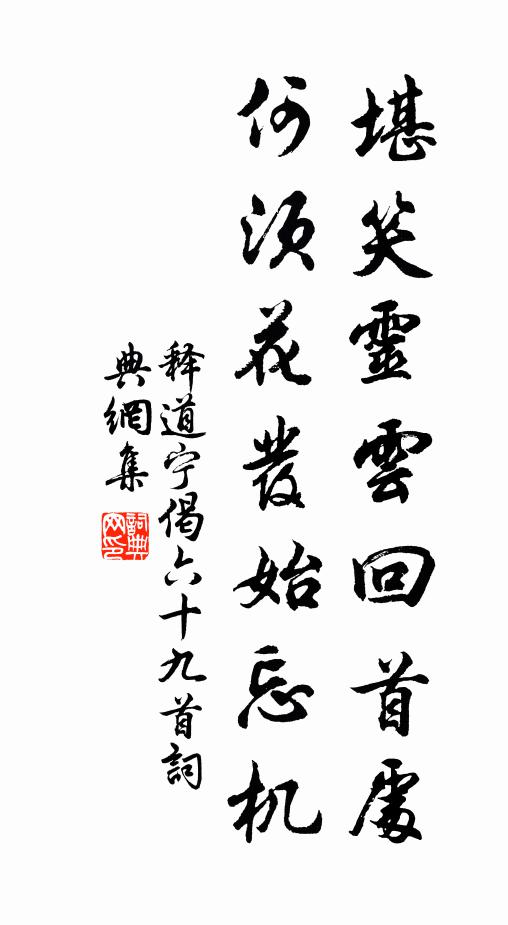 堪笑靈雲回首處
何須花發始忘机
释道宁偈六十九首詞
典網集
詞典
网印